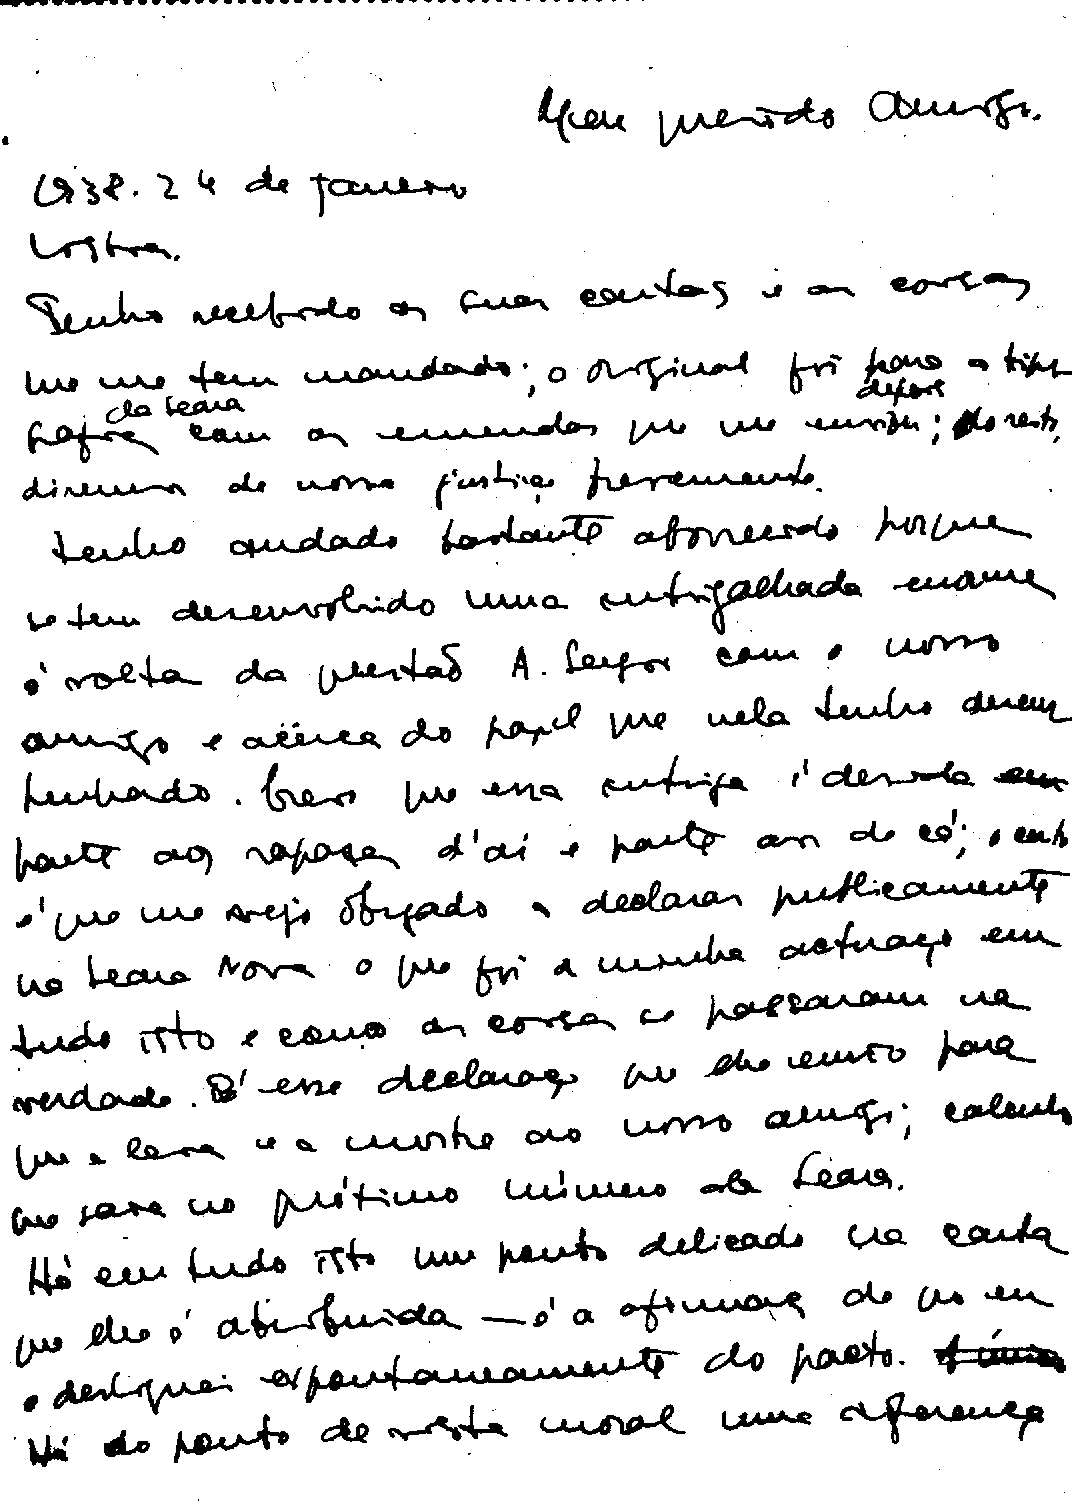 Meu querido Amigo.
1938. 24 de Janeiro
Lisboa.
Tenho recebido as suas cartas e as coisas
que me tem mandado; o original foi para a tipo-
da Seara depois
grafia com as emendas que me enviou; do resto,
diremos de nossa justiça brevemente.
Tenho andado bastante aborrecido porque
se tem desenvolvido uma intrigalhada enorme
à volta da questão A. Sérgio com o nosso
amigo e acêrca do papel que nela tenho desem-
penhado. Creio que essa intriga é devida em
parte aos rapazes d'aí e parte aos de cá; o certo
é que me vejo obrigado a declarar publicamente
na Seara Nova o que foi a minha actuação em
tudo isto e como as coisas se passaram na
verdade. É essa declaração que lhe envio para
que a leia e a mostre ao nosso amigo; calculo
que saia no próximo número da Seara.
Há em tudo isto um ponto delicado na carta
que lhe é atribuida — é a afirmação de que eu
o desliguei expontaneamente do pacto.
Há do ponto de vista moral uma diferença